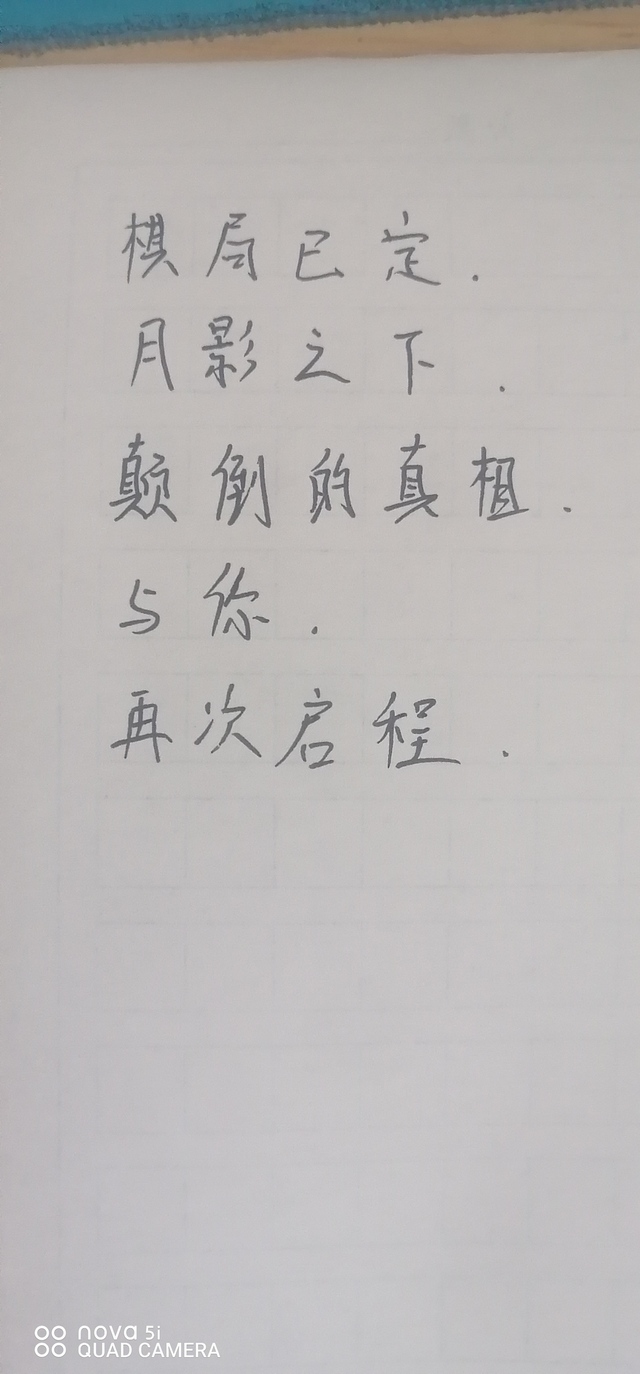 棋局已定.
月影之下.
颠倒的真相.
与你.
再次启程.
nova 5i
QUAD CAMERA